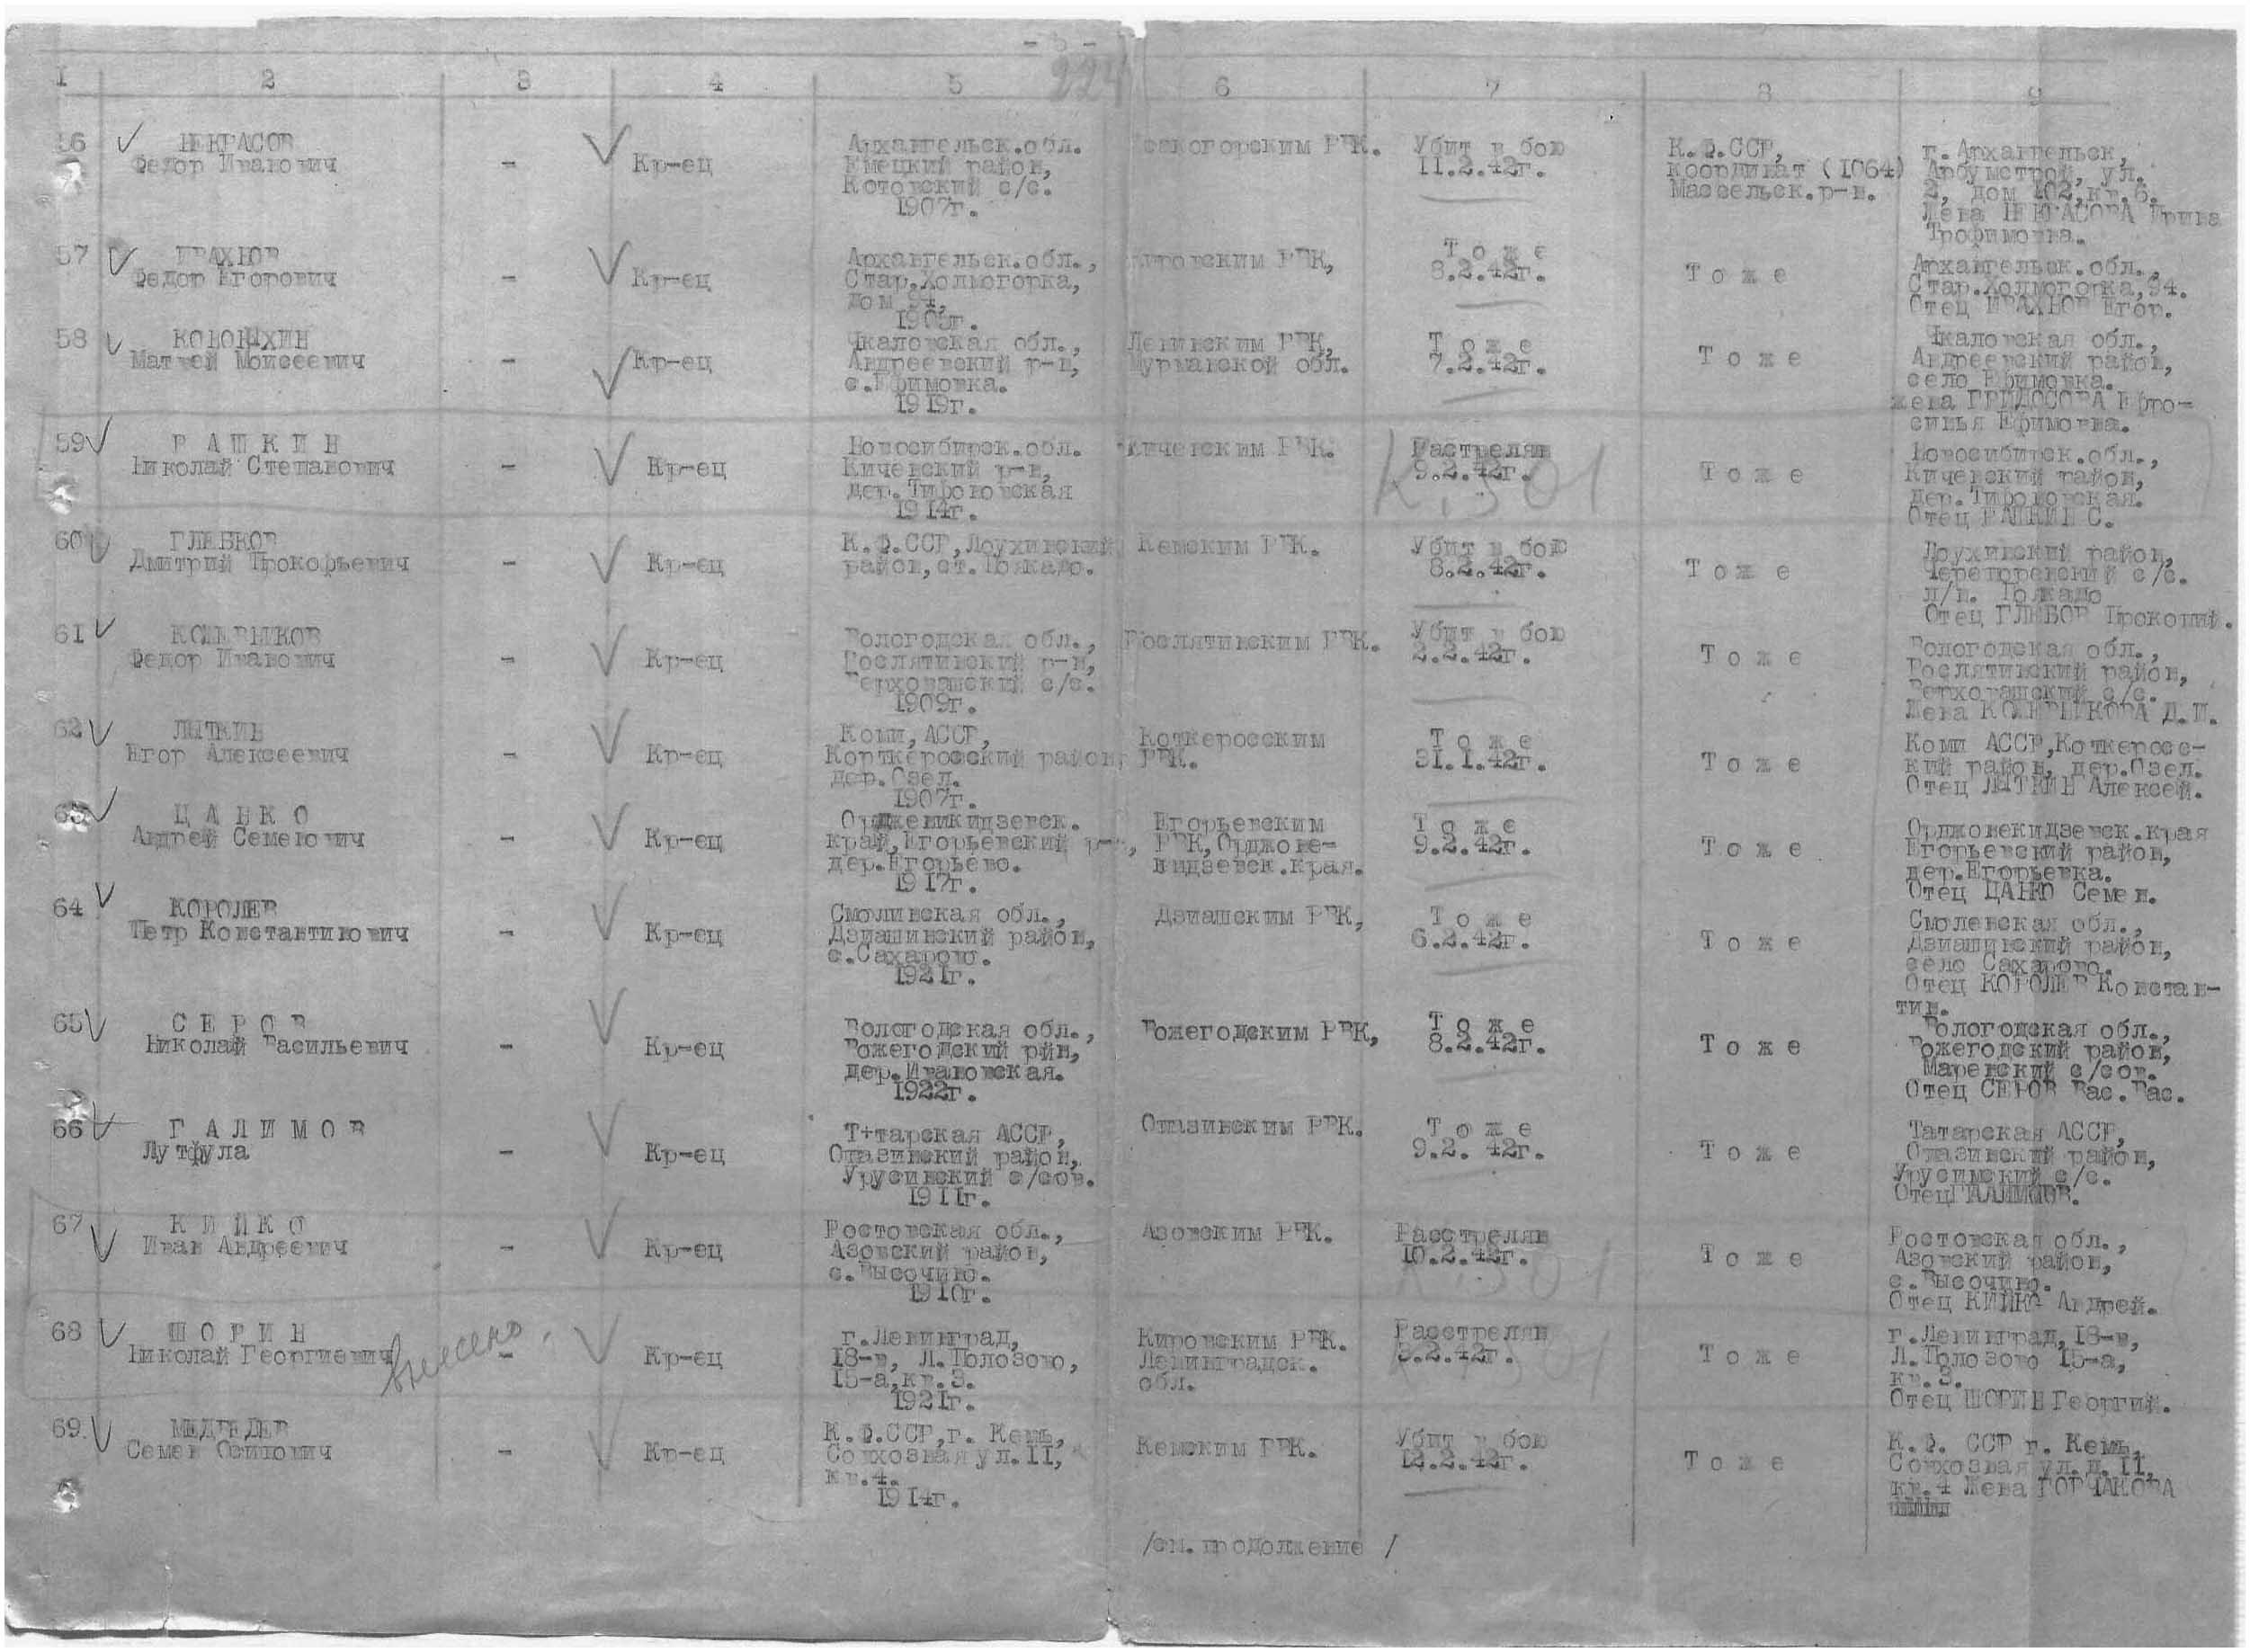 224
1 2 3 4 5 6 7 8 9
56 НЕКРАСОВ
Федор Иванович
-
Кр-ец
Архангельск.обл.
Емецкий район,
Котовский с/с.
1907г.
РВК.
Убит в бою
11.2.42г.
К.Ф.ССР,
координат (1064)
Массельск.р-н.
г.Архангельск,
Арбумстрой, ул.
2, дом 102,кв.6.
Жена НЕКРАСОВА Ирина
Трофимовна.
57 ИВАХНОВ
Федор Егорович
-
Кр-ец
Архангельск.обл.,
Стар.Холмогорка,
дом 94,
1905г.
Кировским РВК,
Т о ж е
8.2.42г.
Т о ж е
Архангельск.обл.,
Стар.Холмогорка,94.
Отец ИВАХНОВ Егор.
58
Матвей Моисеевич
-
Кр-ец
Чкаловская обл.,
Андреевский р-н,
с.Ефимовка.
1919г.
Ленинским РВК,
Мурманской обл.
Т о ж е
7.2.42г.
Т о ж е
Чкаловская обл.,
Андреевский район,
село Ефимовка.
жена Ефро-
синья Ефимовна.
59 Р А Ш К И Н
Николай Степанович
-
Кр-ец
Новосибирск.обл.
Кичевский р-н,
дер.Тифоновская
1914г.
Кичевским РВК.
Растрелян
9.2.42г.
К.301
Т о ж е
Новосибирск.обл.,
Кичевский район,
дер.Тифоновская.
Отец РАШКИН С.
60 ГЛЕБКОВ
Дмитрий Прокофьевич
-
Кр-ец
К.Ф.ССР,Лоухинский
район,ст.Полкадо.
Кемским РВК.
Убит в бою
8.2.42г.
Т о ж е
Лоухинский район,
с/с.
п/п. Полкадо
Отец ГЛЕБОВ Прокопий.
61
Федор Иванович
-
Кр-ец
Вологодская обл.,
Рослятинский р-н,
Верховашский с/с.
1909г.
Рослятинским РВК.
Убит в бою
2.2.42г.
Т о ж е
Вологодская обл.,
Рослятинский район,
Верховашский с/с.
Жена Д.И.
62 ЛЫТКИН
Егор Алексеевич
-
Кр-ец
Коми,АССР,
Корткеросский район,
дер.Озел.
1907г.
Коткеросским
РВК.
Т о ж е
31.1.42г.
Т о ж е
Коми АССР,Коткеросс-
кий район, дер.Озел.
Отец ЛЫТКИН Алексей.
63 Ц А Н К О
Андрей Семенович
-
Кр-ец
Ордженикидзевск.
край,Егорьевский р-н,
дер.Егорьево.
1917г.
Егорьевским
РВК,Орджоне-
кидзевск.края.
Т о ж е
9.2.42г.
Т о ж е
Орджонекидзевск.края
Егорьевский район,
дер.Егорьевка.
Отец ЦАНКО Семен.
64 КОРОЛЕВ
Петр Константинович
-
Кр-ец
Смолинская обл.,
Дзиашинский район,
с.Сахарово.
1921г.
Дзиашским РВК,
Т о ж е
6.2.42г.
Т о ж е
Смоленская обл.,
Дзиашинский район,
село Сахарово.
Отец КОРОЛЕВ Констан-
тин.
65 С Е Р О В
Николай Васильевич
-
Кр-ец
Вологодская обл.,
Вожегодский рйн,
дер.Ивановская.
1922г.
Вожегодским РВК,
Т о ж е
8.2.42г.
Т о ж е
Вологодская обл.,
Вожегодский район,
Маревский с/сов.
Отец СЕРОВ Вас.Вас.
66 Г А Л И М О В
Лутфула
-
Кр-ец
Т+тарская АССР,
Отазинский район,
Урусинский с/сов.
1911г.
Отазинским РВК.
Т о ж е
9.2. 42г.
Т о ж е
Татарская АССР,
Отазинский район,
Урусимский с/с.
Отец ГАЛИМОВ.
67 К И Й К О
Иван Андреевич
-
Кр-ец
Ростовская обл.,
Азовский район,
с.Высочино.
1910г.
Азовским РВК.
Расстрелян
10.2.42г.
К.301
Т о ж е
Ростовская обл.,
Азовский район,
с.Высочино.
Отец КИЙКО Андрей.
68 Ш О Р И Н
Николай Георгиевич
внесено
-
Кр-ец
г.Ленинград,
18-в, Л.Полозово,
15-а,кв.3.
1921г.
Кировским РВК.
Ленинградск.
обл.
Расстрелян
3.2.42г.
Т о ж е
г.Ленинград,18-в,
Л.Полозово 15-а,
кв.3.
Отец ШОРИН Георгий.
69. МЕДВЕДЕВ
Семен Осипович
-
Кр-ец
К.Ф.ССР,г. Кемь,
Совхозная ул.11,
кв.4.
1914г.
Кемским РВК.
Убит в бою
12.2.42г.
Т о ж е
К.Ф. ССР г. Кемь,
Совхозная ул.д.11,
кв.4 Жена ГОРЧАКОВА
/см.продолжение /